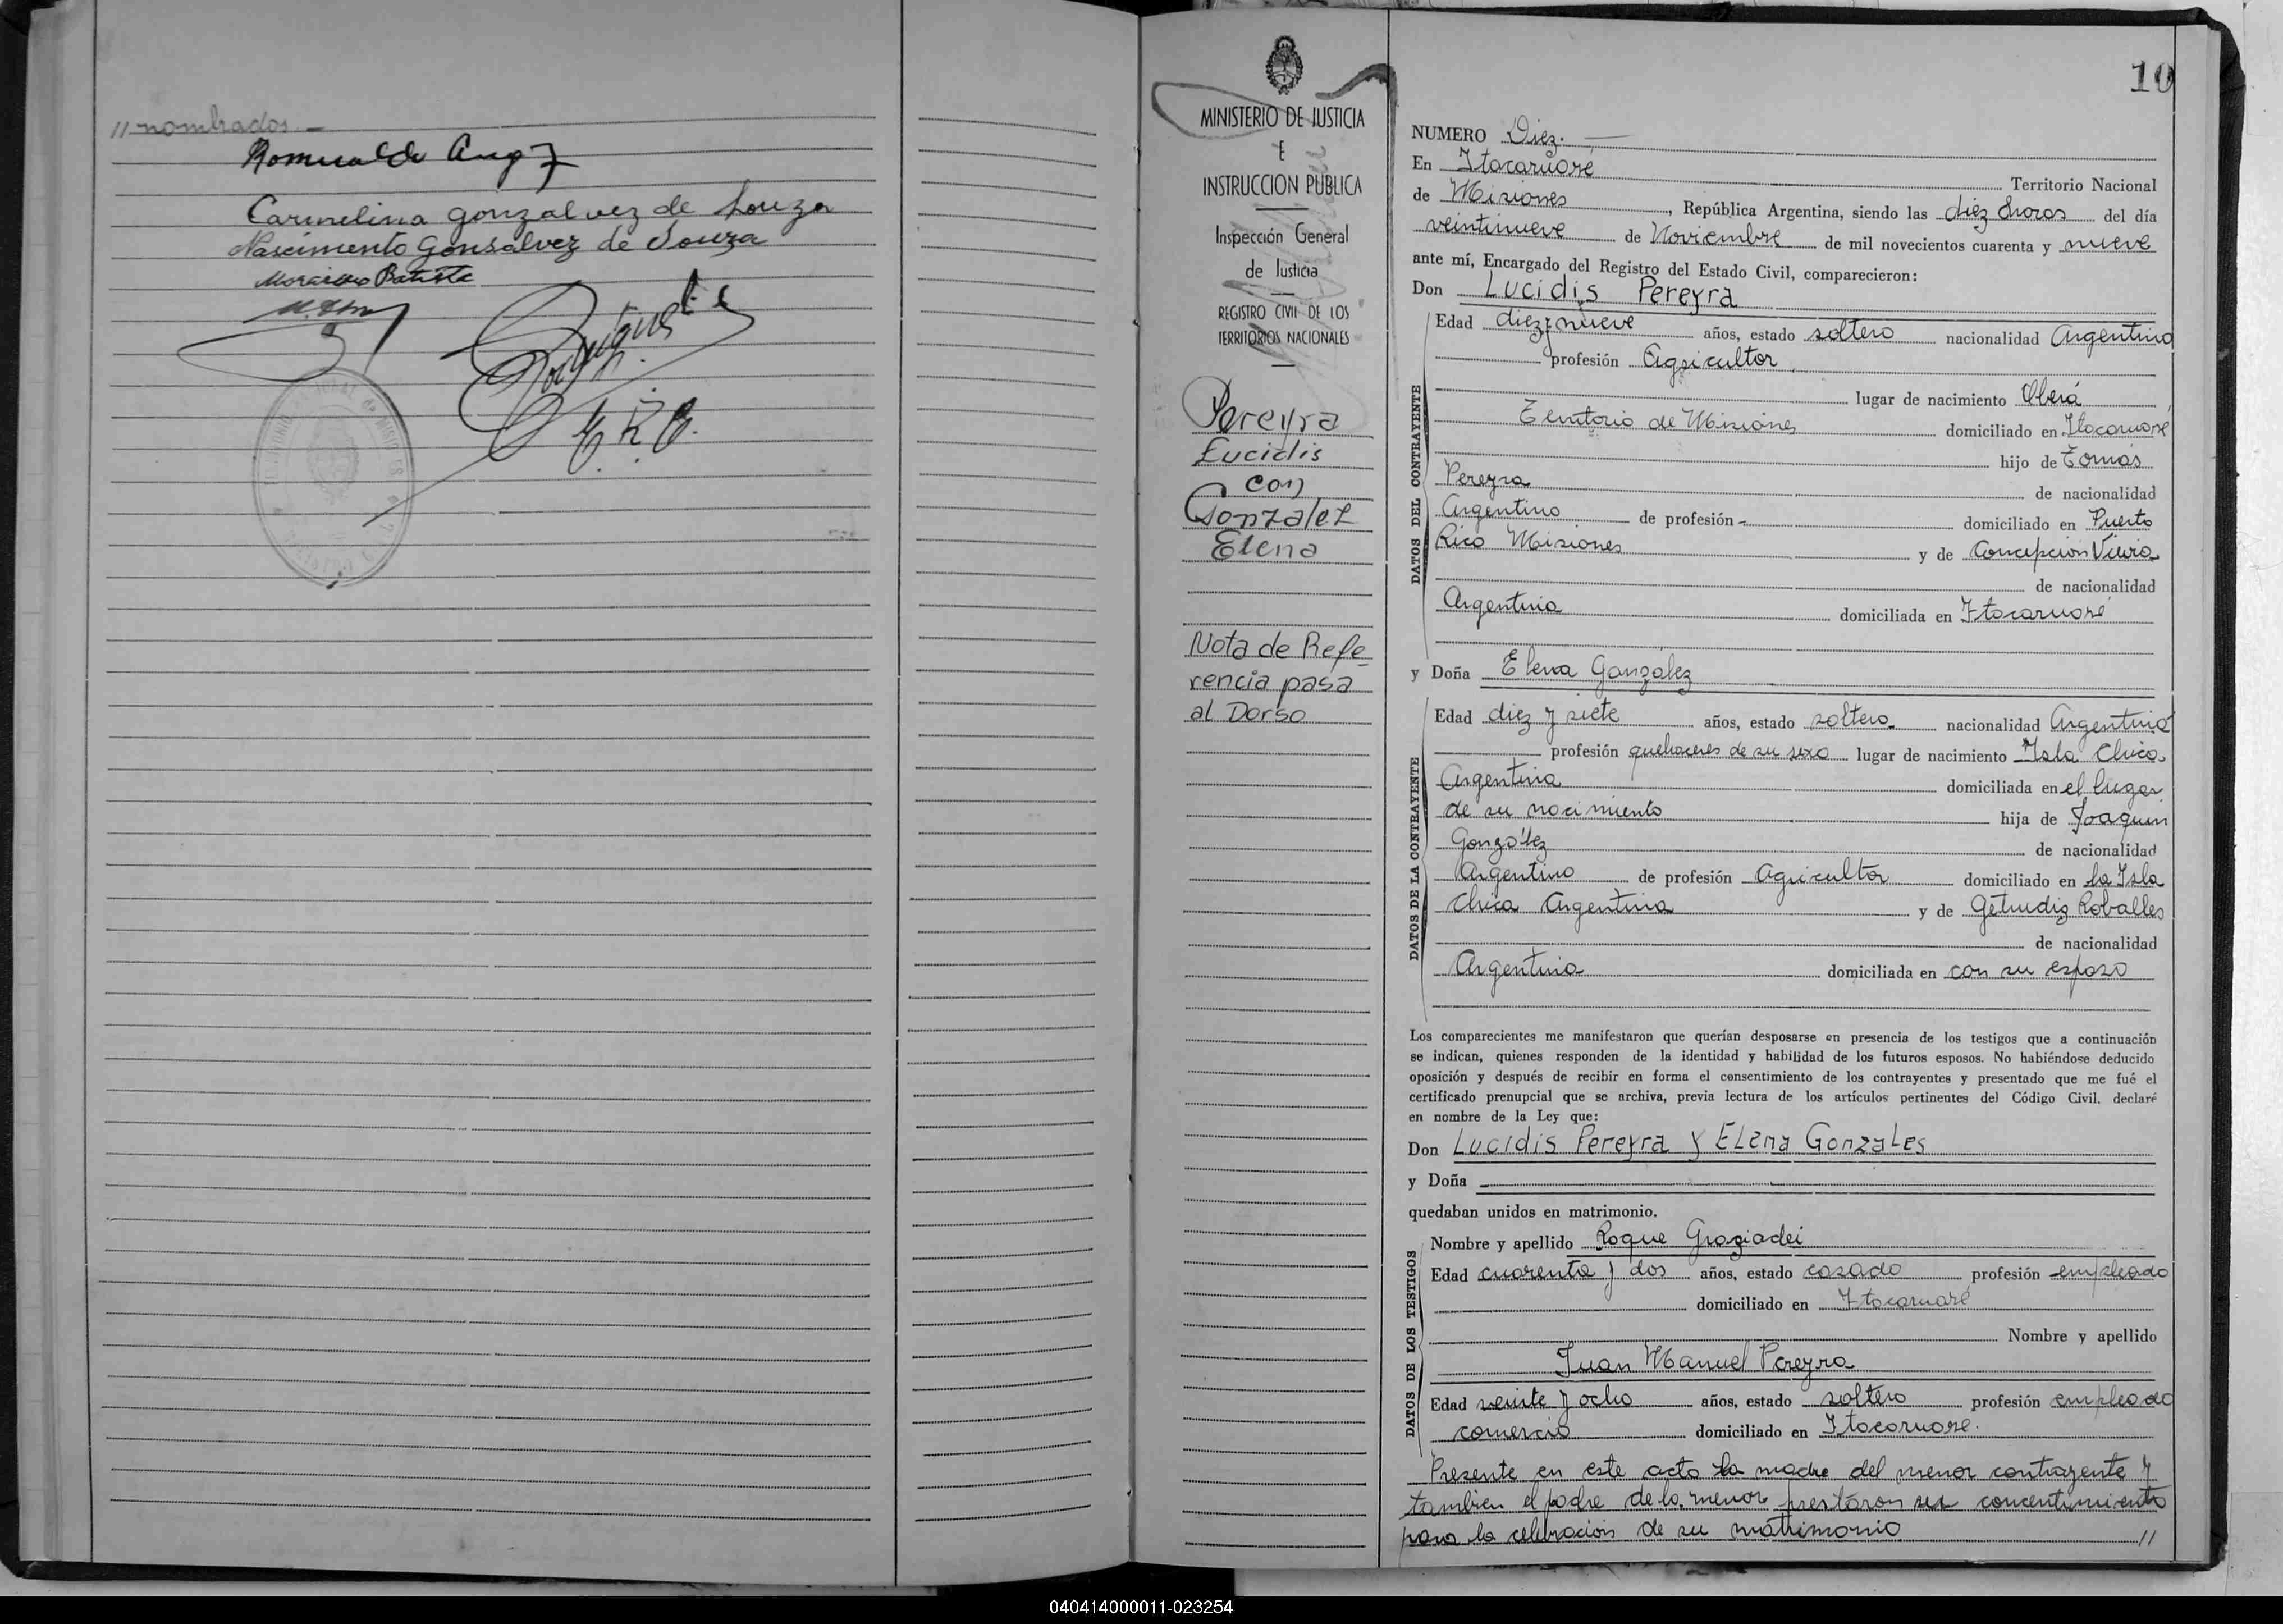 // nombrados. —
Carmelina gonzalvez de Souza
Nascimento Gonsalvez de Souza
E. R. C.
MINISTERIO DE JUSTICIA
E
INSTRUCCION PUBLICA
Inspección General
de Justicia
REGISTRO CIVIL DE LOS
TERRITORIOS NACIONALES
Pereyra
Lucidis
con
Gonzalez
Elena
Nota de Refe-
rencia pasa
al Dorso
10
NUMERO Diez. —
En Itacaruaré Territorio Nacional
de Misiones, República Argentina, siendo las diez horas del día
veintinueve de Noviembre de mil novecientos cuarenta y nueve
ante mí, Encargado del Registro del Estado Civil, comparecieron:
Don Lucidis Pereyra
DATOS DEL CONTRAYENTE
Edad diez y nueve años, estado soltero nacionalidad Argentino
profesión Agricultor
lugar de nacimiento Oberá
Territorio de Misiones domiciliado en Itacaruaré
hijo de Tomás
Pereyra de nacionalidad
Argentino de profesión - domiciliado en Puerto
Rico Misiones y de Concepcion Vieira
de nacionalidad
Argentina domiciliada en Itacaruaré
y Doña Elena González
DATOS DE LA CONTRAYENTE
Edad diez y siete años, estado soltera nacionalidad Argentina
profesión quehaceres de su sexo lugar de nacimiento Isla Chica
Argentina domiciliada en el lugar
de su nacimiento hija de Joaquin
González de nacionalidad
Argentino de profesión Agricultor domiciliado en la Isla
Chica Argentina y de Getrudiz Roballes
de nacionalidad
Argentina domiciliada en con su esposo
Los comparecientes me manifestaron que querían desposarse en presencia de los testigos que a continuación
se indican, quienes responden de la identidad y habilidad de los futuros esposos. No habiéndose deducido
oposición y después de recibir en forma el consentimiento de los contrayentes y presentado que me fué el
certificado prenupcial que se archiva, previa lectura de los artículos pertinentes del Código Civil, declaré
en nombre de la Ley que:
Don Lucidis Pereyra y Elena Gonzales
y Doña
quedaban unidos en matrimonio.
DATOS DE LOS TESTIGOS
Nombre y apellido Roque Graziadei
Edad cuarenta y dos años, estado casado profesión empleado
domiciliado en Itacaruaré
Nombre y apellido
Juan Manuel Pereyra
Edad veinte y ocho años, estado soltero profesión empleado
comercio domiciliado en Itacaruaré.
Presente en este acto la madre del menor contrayente y
tambien el padre de la menor prestaron su concentimiento
para la celebracion de su matrimonio //
040414000011-023254